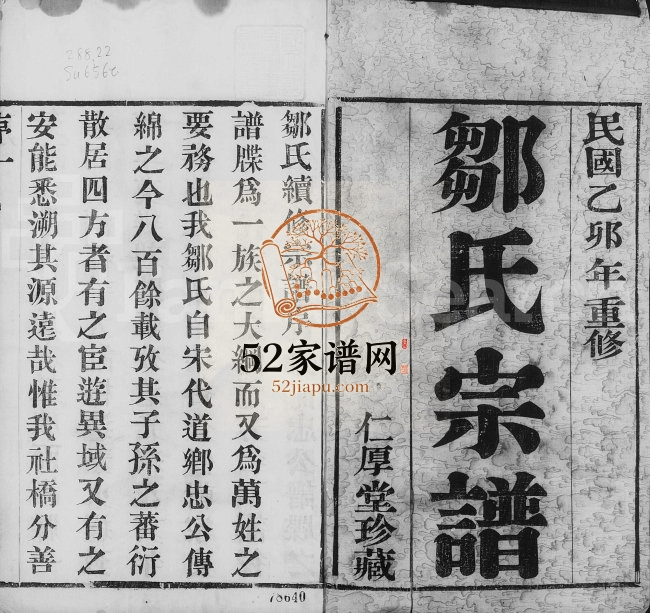 民國乙卯年重修
鄒氏宗譜
仁厚堂珍藏
鄒氏續修宗譜序
譜牒爲一族之大綱而又爲萬姓之
要務也我鄒氏自宋代道鄉忠公傳
綿之今八百餘載攷其子孫之蕃衍
散居四方者有之宦遊異域又有之
安能悉溯其源遠哉惟我社橋分善
序一
288.22
Su656c
78640
52家谱网
52jiapu.com